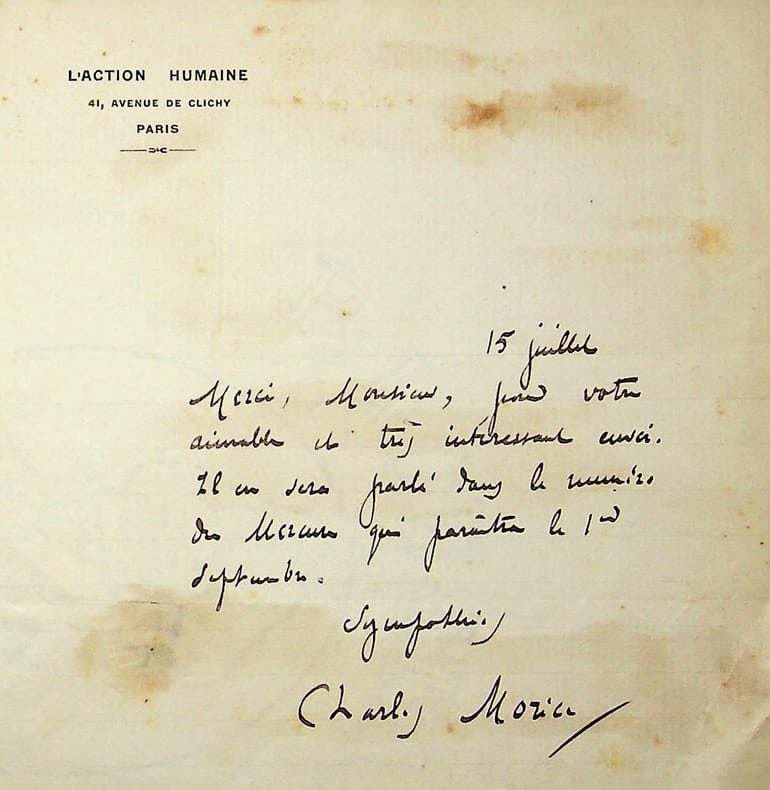 L'ACTION HUMAINE
41, AVENUE DE CLICHY
PARIS
15 juillet
Merci, Monsieur, pour votre
aimable et très intéressant envoi.
Il en sera parlé dans le numéro
du Mercure qui paraîtra le 1er
septembre.
Sympathies
Charles Morice